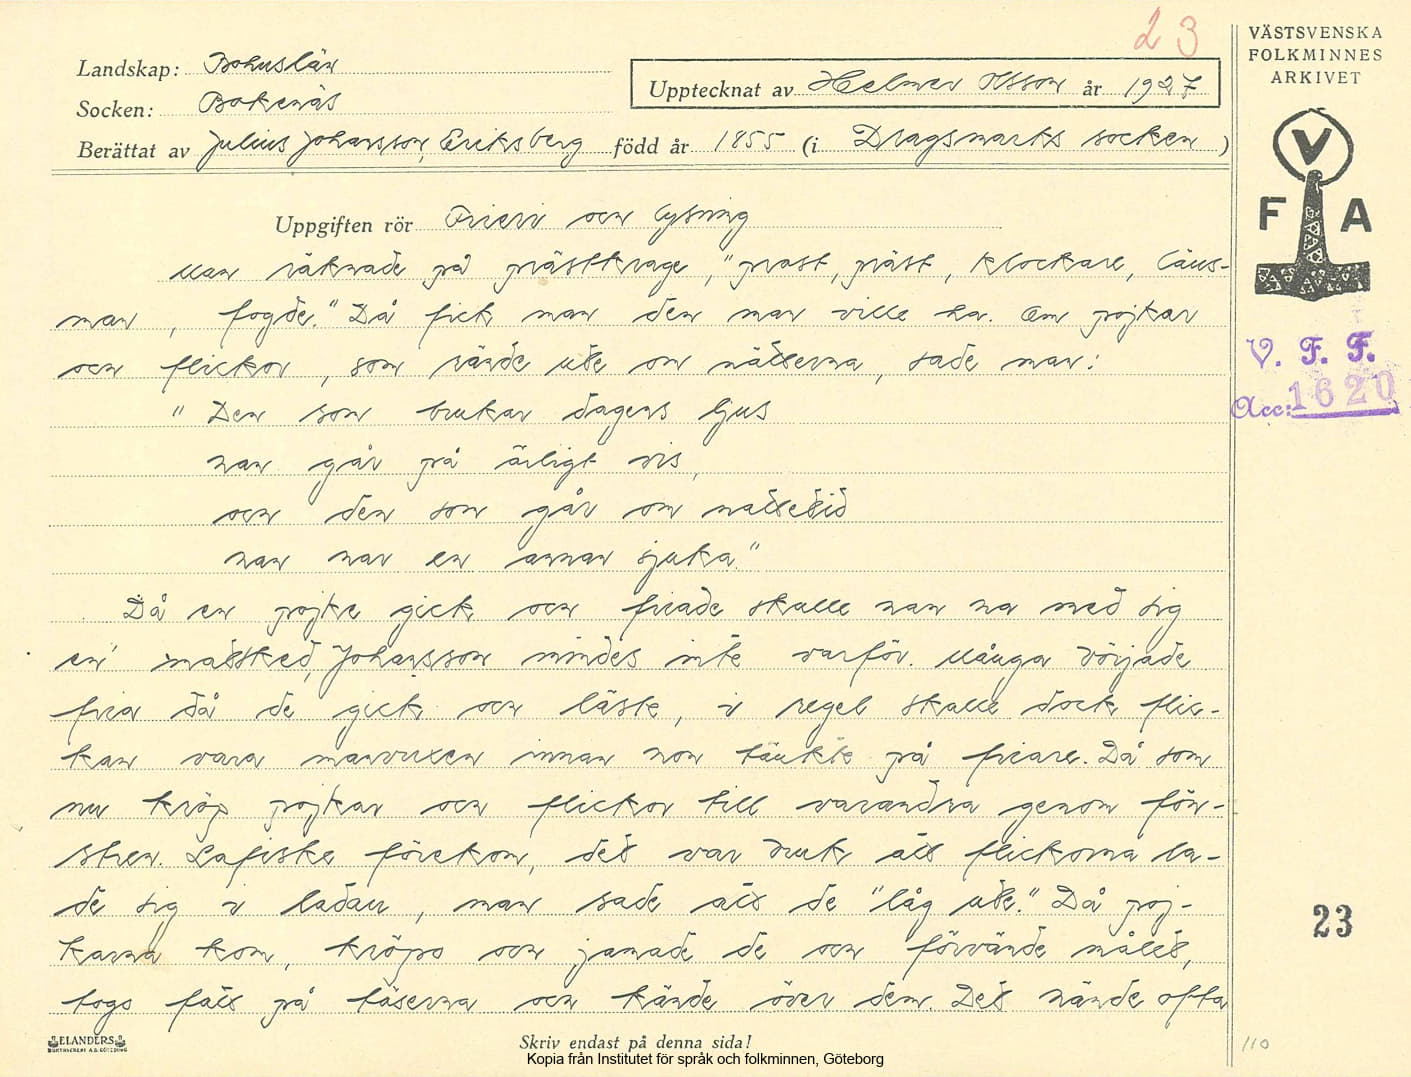 23
VÄSTSVENSKA
FOLKMINNES
ARKIVET
Landskap: Bohuslän
Upptecknat av Helmer Olsson år 1927
Socken: Bokenäs
Berättat av Julius Johansson, Eriksberg född år 1855 (i Dragsmarks socken)
V
F A
Uppgiften rör Frieri och lysning
Man räknade på prästkrage, "prost, präst, klockare, läns-
man, fogde." Då fick man den man ville ha. Om pojkar
och flickor, som rände ute om nätterna, sade man:
"Den som brukar dagens ljus
han går på ärligt vis,
och den som går om nattetid
han har en annan sjuka."
Då en pojke gick och friade skulle han ha med sig
en matsked, Johansson mindes inte varför. Många började
fria då de gick och läste, i regel skulle dock flic-
kan vara manvuxen innan hon tänkte på friare. Då som
nu kröp pojkar och flickor till varandra genom fön-
stren. Lafiske förekom, det var bruk att flickorna la-
de sig i ladan, man sade att de "låg ute." Då poj-
karna kom, kröpo och jamade de och förvände målet,
togo fatt på täserna och kände över dem. Det hände ofta
V. F. F.
Acc: 1620
23
ELANDERS
BOKTRYCKERI A.B. GÖTEBORG
Skriv endast på denna sida!
110
Kopia från Institutet för språk och folkminnen, Göteborg